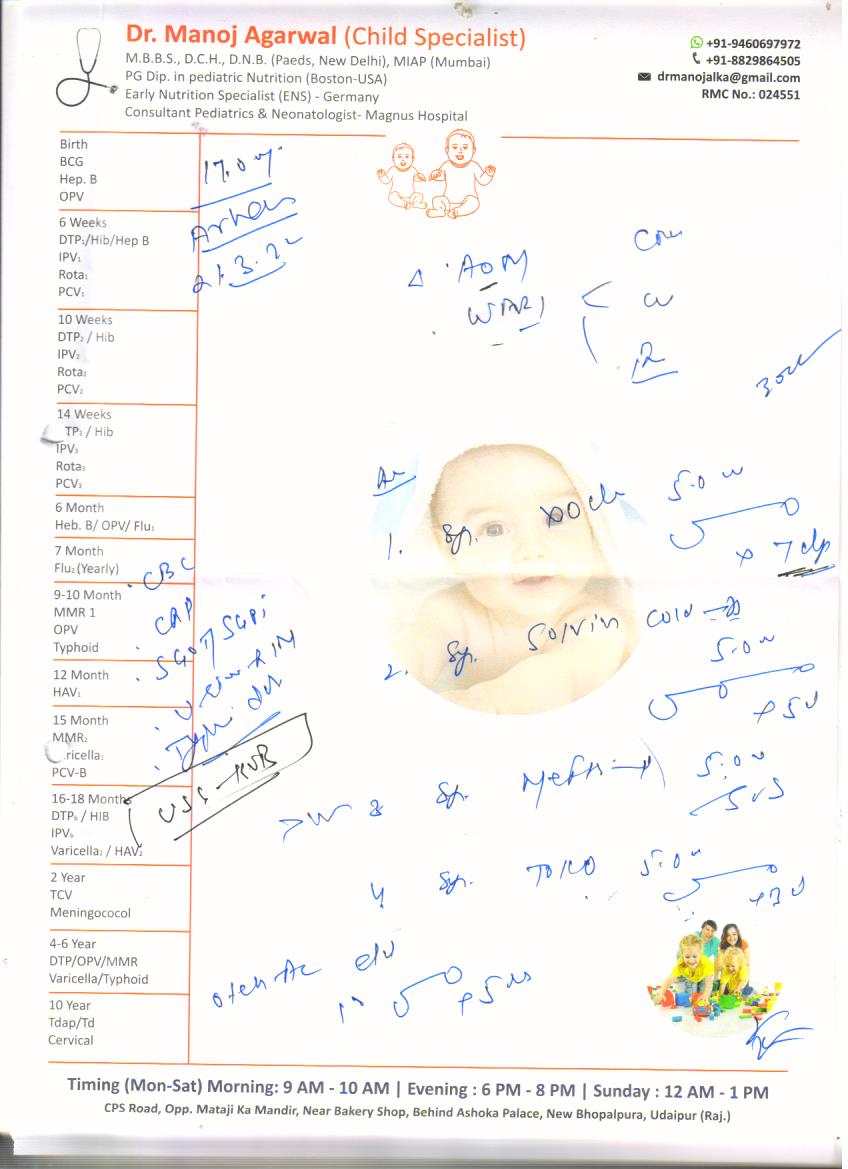 Dr. Manoj Agarwal (Child Specialist)
M.B.B.S., D.C.H., D.N.B. (Paeds, New Delhi), MIAP (Mumbai)
PG Dip. in pediatric Nutrition (Boston-USA)
Early Nutrition Specialist (ENS) - Germany
Consultant Pediatrics & Neonatologist- Magnus Hospital
+91-9460697972
+91-8829864505
drmanojalka@gmail.com
RMC No.: 024551
Birth
BCG
Hep. B
OPV
6 Weeks
DTP₁/Hib/Hep B
IPV₁
Rota₁
PCV₁
10 Weeks
DTP₂ / Hib
IPV₂
Rota₂
PCV₂
14 Weeks
TP₃ / Hib
IPV₃
Rota₃
PCV₃
6 Month
Heb. B/ OPV/ Flu₁
7 Month
Flu₂ (Yearly)
9-10 Month
MMR 1
OPV
Typhoid
12 Month
HAV₁
15 Month
MMR₂
ricella₁
PCV-B
16-18 Month
DTPᵦ / HIB
IPVᵦ
Varicella₂ / HAV₂
2 Year
TCV
Meningococol
4-6 Year
DTP/OPV/MMR
Varicella/Typhoid
10 Year
Tdap/Td
Cervical
21.3.22
Δ AOM
CBC
CRP
SGOT/SGPT
1. Syp. 5.0
x 7
2. Syp. Solvin Cold 5.0
Syp. 5.0
4 Syp. 5.0
Timing (Mon-Sat) Morning: 9 AM - 10 AM | Evening : 6 PM - 8 PM | Sunday : 12 AM - 1 PM
CPS Road, Opp. Mataji Ka Mandir, Near Bakery Shop, Behind Ashoka Palace, New Bhopalpura, Udaipur (Raj.)